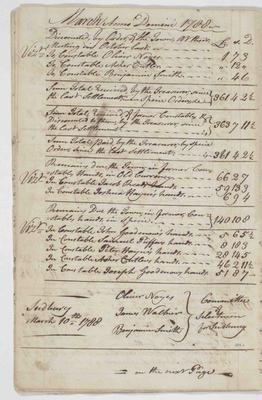 March Anno Domini 1788
£ s D
Discounted, by Order of the Town, at their
Meeting in October last
Viz In Constable Peter Noyes 1 7 3
In Constable Asher Cutler 12
In Constable Benjamin Smith 4 6
Sum Total received by the Treasurer since
the last Settlement in Specie Orders &c 361 4 2½
Sum Total received of former Constables &
Discounted to them by the Treasurer since
the last Settlement 363 7 11½
Sum Total Paid by the Treasurer by Specie
Orders since the last Settlement 361 4 2½
Remains due the Town in former Con-
stable Hands, in Old Currency 66 2 7
Viz In Constable Jacob hands 59 13 3
In Constable hands 6 9 4
Remains Due the Town in former Con-
stable hands in 140 10 8
Viz In Constable John Goodenow's hands 5 6 5½
In Constable Samuel Puffers hands 8 10 3
In Constable Peter Noyes's hands 28 14 5
In Constable Asher Cutlers hands 46 2 11½
In Constable Joseph Goodenows hands 51 8 7
Sudbury
March 10th 1788
Oliver Noyes
James Walker
Benjamin Smith
Committee
Selectmen
for Sudbury
on the next Page